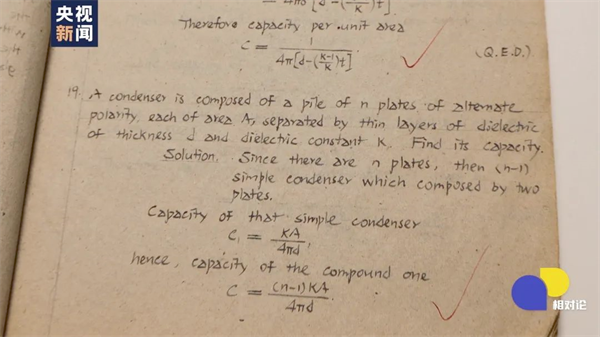 央视
新闻
= 4πo [d-(K-1/K)t]
Therefore capacity per unit area
C = 1/4π[d-(K-1/K)t]
(Q.E.D.)
19. A condenser is composed of a pile of n plates of alternate
polarity, each of area A, separated by thin layers of dielectric
of thickness d and dielectric constant K. Find its capacity.
Solution. Since there are n plates, then (n-1)
simple condenser which composed by two
plates.
Capacity of that simple condenser
C₁ = KA/4πd,
hence, capacity of the compound one
C = (n-1)KA/4πd.
相对论